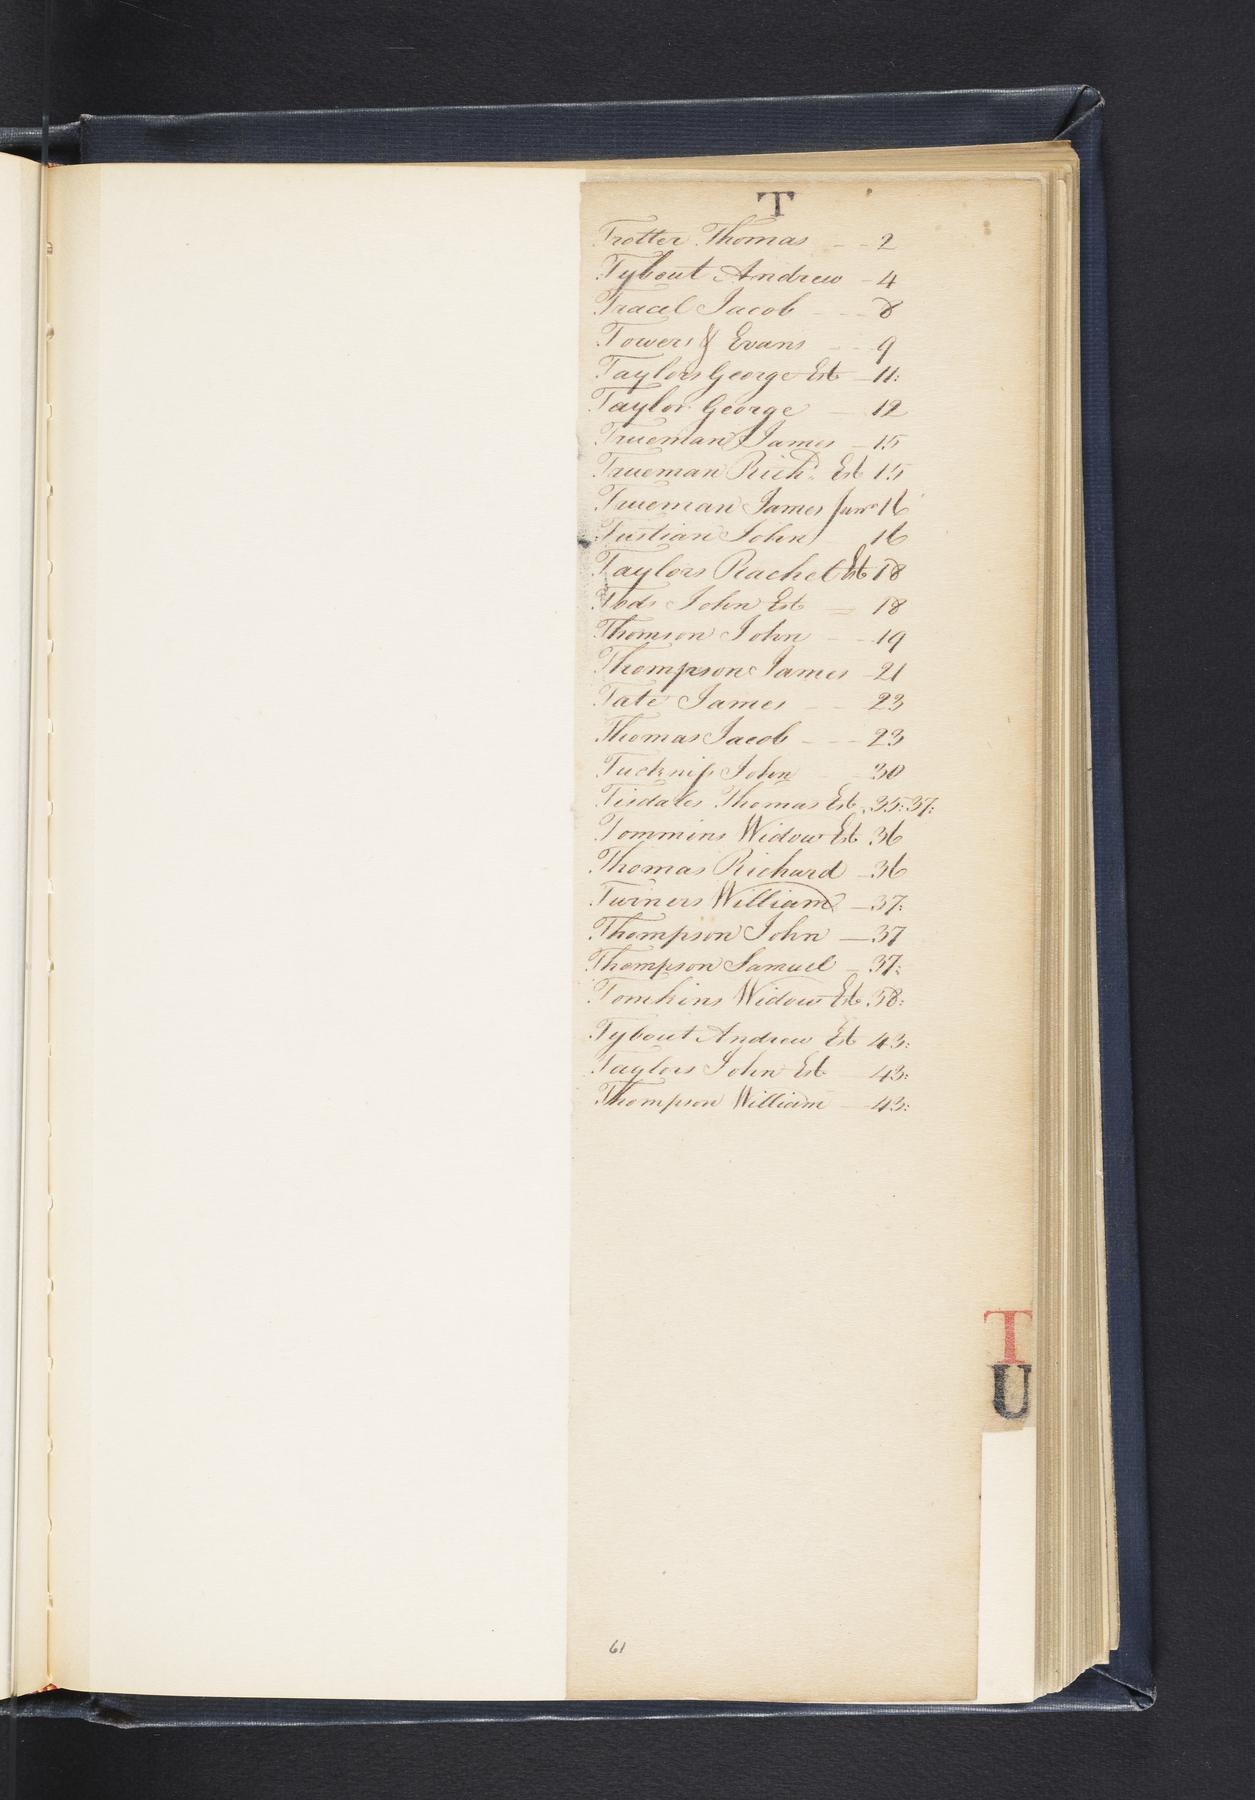 T
Trotter Thomas - - 2
Tybout Andrew - 4
Tracel Jacob - - - 8
Towers & Evans - - 9
Taylors George Est - 11:
Taylor George - 12
Trueman James - 15
Trueman Richd. Est 15
Trueman James Junr 16
Tustian John - 16
Taylors Rachel Est 18
Tods John Est = 18
Thomson John - - 19
Thompson James - 21
Tate James - - 23
Thomas Jacob - - - 23
Tucknifs John - - 30
Tisdales Thomas Est. 35:37:
Tommins Widow Est 36
Thomas Richard - 36
Turners William - 37:
Thompson John - 37
Thompson Samuel - 37:
Tomkins Widow Est. 38:
Tybout Andrew Est 43:
Taylors John Est - 43:
Thompson William - 43:
T
U
61